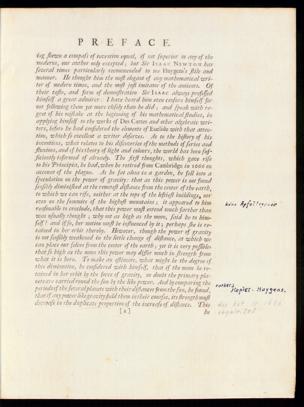 PREFACE.
ing shewn a conquest of invention equal, if not superior to any of the
moderns, our author only excepted; but Sir ISAAC NEWTON has
several times particularly recommended to me Huygens's stile and
manner. He thought him the most elegant of any mathematical wri-
ter of modern times, and the most just imitator of the antients. Of
their taste, and form of demonstration Sir ISAAC always professed
himself a great admirer: I have heard him even censure himself for
not following them yet more closely than he did; and speak with re-
gret of his mistake at the beginning of his mathematical studies, in
applying himself to the works of Des Cartes and other algebraic wri-
ters, before he had considered the elements of Euclide with that atten-
tion, which so excellent a writer deserves. As to the history of his
inventions, what relates to his discoveries of the methods of series and
fluxions, and of his theory of light and colours, the world has been suf-
ficiently informed of already. The first thoughts, which gave rise
to his Principia, he had, when he retired from Cambridge in 1666 on
account of the plague. As he sat alone in a garden, he fell into a
speculation on the power of gravity: that as this power is not found
sensibly diminished at the remotest distance from the center of the earth,
to which we can rise, neither at the tops of the loftiest buildings, nor
even on the summits of the highest mountains; it appeared to him
reasonable to conclude, that this power must extend much farther than
was usually thought; why not as high as the moon, said he to him-
self? and if so, her motion must be influenced by it; perhaps she is re-
tained in her orbit thereby. However, though the power of gravity
is not sensibly weakened in the little change of distance, at which we
can place our selves from the center of the earth; yet it is very possible,
that so high as the moon this power may differ much in strength from
what it is here. To make an estimate, what might be the degree of
this diminution, he considered with himself, that if the moon be re-
tained in her orbit by the force of gravity, no doubt the primary pla-
nets are carried round the sun by the like power. And by comparing the
periods of the several planets with their distances from the sun, he found,
that if any power like gravity held them in their courses, its strength must
decrease in the duplicate proportion of the increase of distance. This
[a] be
Kepler. Huygens.